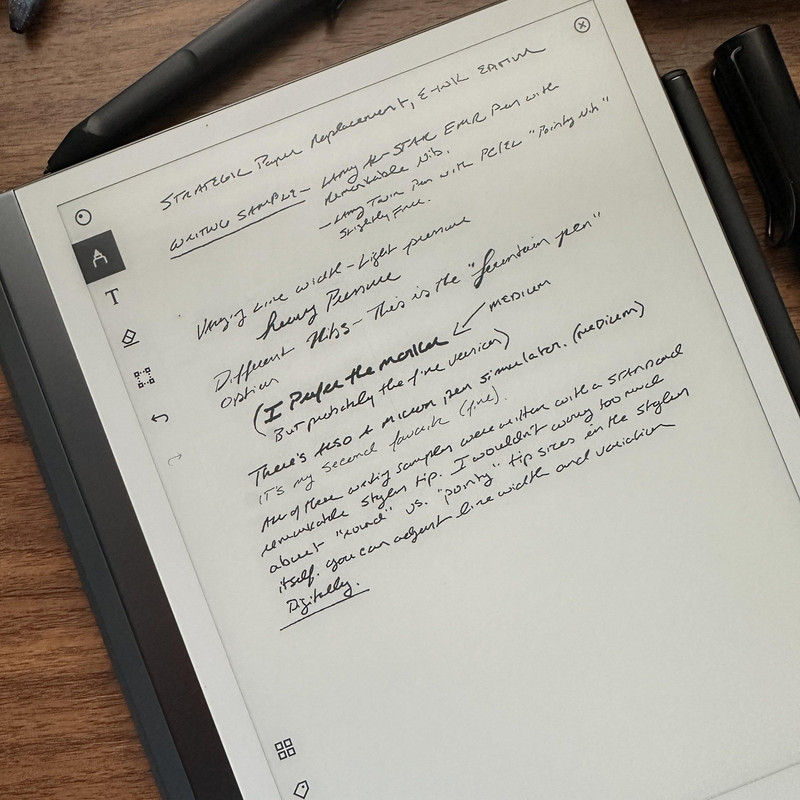 Strategic Paper Replacement, E-Ink Edition
Writing Sample – Lamy Al-Star EMR Pen with
Remarkable Nib.
– Lamy Twin Pen with PC/EL "Pointy Nib"
Slightly Finer.
Varying Line width – Light pressure
heavy Pressure
Different Nibs – This is the "fountain pen"
option
(I Prefer the marker ← MEDIUM
But probably the fine version)
There's also a micron pen simulator. (medium)
It's my second favorite (fine).
All of these writing samples were written with a standard
remarkable stylus tip. I wouldn't worry too much
about "round" vs. "pointy" tip sizes in the stylus
itself. You can adjust line width and variation
Digitally.
T